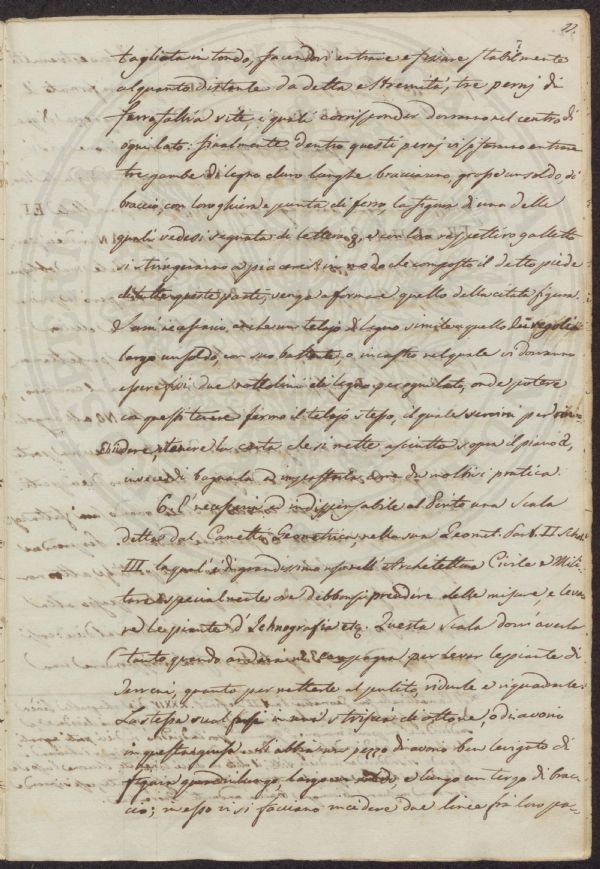 22.
tagliata in tondo, facendovi entrare e fissare stabilmente
alquanto distante da detta estremità, tre pernj di
ferro fatti a vite, i quali corrisponder dovranno nel centro di
ogni lato: finalmente dentro questi pernj vi si faranno entrare
tre gambe di legno duro lunghe braccia uno, grosse un soldo di
braccio, con loro ghiera e punta di ferro, la figura di una delle
quali vedesi segnata di lettera, e con loro respettivo galletto
si stringeranno a piacere in modo che composto il detto piede
di tutte queste parte, venga a formare quello della citata figura.
Sarà necessario anche un telajo di legno simile a quello
largo un soldo, con suo battente, o incastro nel quale vi dovranno
essere due nottolini di legno per ogni lato, onde potere
con questi tenere fermo il telajo stesso, il quale servirà per
e tenere la carta che si mette asciutta sopra il piano
invece di bagnarla ed impostarla, come da molti si pratica.
6. È necessaria ed indispensabile al Perito una Scala
detta dal Canetti Geometrica, nella sua Geomet. Par. II
III. la quale è di grandissimo uso nell'Architettura Civile e Mili-
tare especialmente ove debbonsi prendere delle misure, e leva-
re le piante d'Ichnografia etc. Questa Scala dovrà averla
tanto quando anderà in campagna per levar le piante di
Terreni, quanto per metterle al pulito, ridurle e riquadrarle
La stessa suol farsi in una striscia di ottone, o di avorio
in questa guisa. Si abbia un pezzo di avorio ben levigato di
figura quadrilunga, largo un soldo, e lungo un terzo di brac-
cio; in esso vi si facciano incidere due linee frà loro pa=